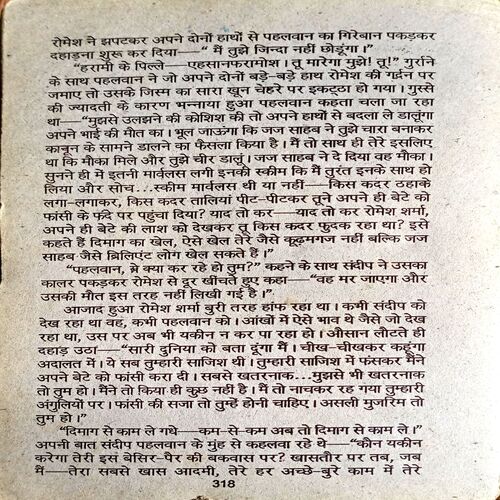 रोमेश ने झपटकर अपने दोनों हाथों से पहलवान का गिरेबान पकड़कर
दहाड़ना शुरू कर दिया—“ मैं तुझे जिन्दा नहीं छोडूंगा।”
“हरामी के पिल्ले—एहसानफरामोश। तू मारेगा मुझे! तू!” गुर्राने
के साथ पहलवान ने जो अपने दोनों बड़े-बड़े हाथ रोमेश की गर्दन पर
जमाए तो उसके जिस्म का सारा खून चेहरे पर इकट्ठा हो गया। गुस्से
की ज्यादती के कारण भन्नाया हुआ पहलवान कहता चला जा रहा
था—“मुझसे उलझने की कोशिश की तो अपने हाथों से बदला ले डालूंगा
अपने भाई की मौत का। भूल जाऊंगा कि जज साहब ने तुझे चारा बनाकर
कानून के सामने डालने का फैसला किया है। मैं तो साथ ही तेरे इसलिए
था कि मौका मिले और तुझे चीर डालूं। जज साहब ने दे दिया वह मौका।
सुनने ही में इतनी मार्वलस लगी इनकी स्कीम कि मैं तुरंत इनके साथ हो
लिया और सोच...स्कीम मार्वलस थी या नहीं—किस कदर ठहाके
लगा-लगाकर, किस कदर तालियां पीट-पीटकर तूने अपने ही बेटे को
फांसी के फंदे पर पहुंचा दिया? याद तो कर—याद तो कर रोमेश शर्मा,
अपने ही बेटे की लाश को देखकर तू किस कदर फुदक रहा था? इसे
कहते हैं दिमाग का खेल, ऐसे खेल तेरे जैसे कूढ़मगज नहीं बल्कि जज
साहब जैसे ब्रिलिएंट लोग खेल सकते हैं।”
“पहलवान, ये क्या कर रहे हो तुम?” कहने के साथ संदीप ने उसका
कालर पकड़कर रोमेश से दूर खींचते हुए कहा—“वह मर जाएगा और
उसकी मौत इस तरह नहीं लिखी गई है।”
आजाद हुआ रोमेश शर्मा बुरी तरह हांफ रहा था। कभी संदीप को
देख रहा था वह, कभी पहलवान को। आंखों में ऐसे भाव थे जैसे जो देख
रहा था, उस पर अब भी यकीन न कर पा रहा हो। औसान लौटते ही
दहाड़ उठा—“सारी दुनिया को बता दूंगा मैं। चीख-चीखकर कहूंगा
अदालत में। ये सब तुम्हारी साजिश थी। तुम्हारी साजिश में फंसकर मैंने
अपने बेटे को फांसी करा दी। सबसे खतरनाक...मुझसे भी खतरनाक
तो तुम हो। मैंने तो किया ही कुछ नहीं है। मैं तो नाचकर रह गया तुम्हारी
अंगुलियों पर। फांसी की सजा तो तुम्हें होनी चाहिए। असली मुजरिम तो
तुम हो।”
“दिमाग से काम ले गधे—कम-से-कम अब तो दिमाग से काम ले।”
अपनी बात संदीप पहलवान के मुंह से कहलवा रहे थे—“कौन यकीन
करेगा तेरी इस बेसिर-पैर की बकवास पर? खासतौर पर तब, जब
मैं—तेरा सबसे खास आदमी, तेरे हर अच्छे-बुरे काम में तेरे
318